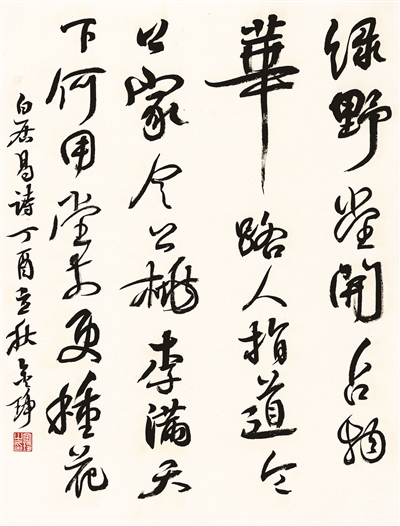 绿野堂開占物
華路人指道令
公家令公桃李滿天
下何用堂前更種花
白居易詩丁酉立秋